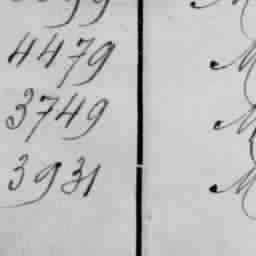 4479 M
3749 M
3931 M